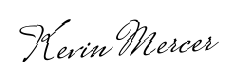 Kevin Mercer